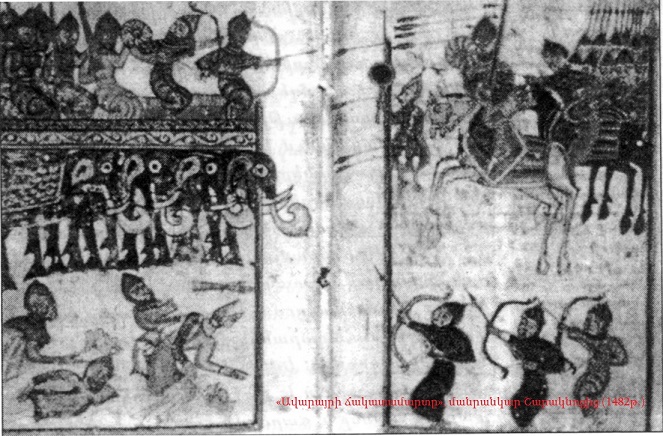 «Ավարայրի ճակատամարտը», մանրանկար Շարակնոցից (1482թ.)